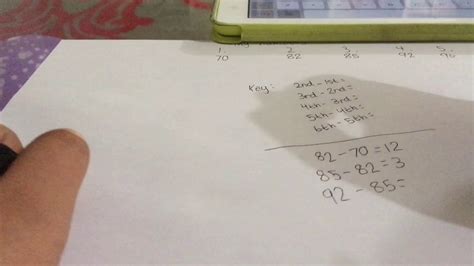 1. 2. 3. 4. 5.
70 82 85 92
Key: 2nd-1st=
3rd-2nd=
4th-3rd=
5th-4th=
6th-5th=
82-70=12
85-82=3
92-85=